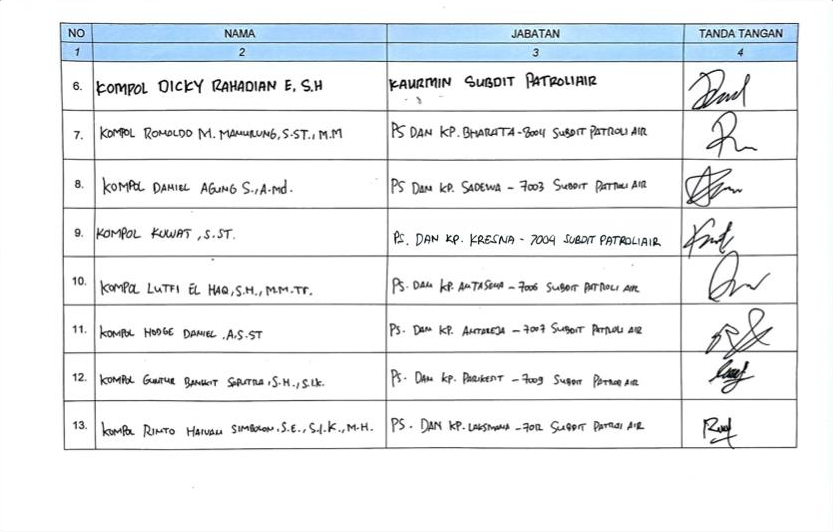 NO NAMA JABATAN TANDA TANGAN
1 2 3 4
6. KOMPOL DICKY RAHADIAN E, S.H KAURMIN SUBDIT PATROLIAIR
7. KOMPOL ROMOLDO M. MANURUNG, S.ST., M.M PS DAN KP. BHARATA - 8004 SUBDIT PATROLI AIR
8. KOMPOL DANIEL AGUNG S., A.Md. PS DAN KP. SADEWA - 7003 SUBDIT PATROLI AIR
9. KOMPOL KUWAT, S.ST. PS. DAN KP. KRESNA - 7004 SUBDIT PATROLIAIR
10. KOMPOL LUTFI EL HAQ, S.H., M.M.Tr. PS. DAN KP. ANTASENA - 7006 SUBDIT PATROLI AIR
11. KOMPOL HODGE DANIEL .A, S.ST PS. DAN KP. ANTAREJA - 7007 SUBDIT PATROLI AIR
12. KOMPOL GUNTUR BANGKIT SAPUTRA, S.H., S.I.K. PS. DAN KP. PARIKESIT - 7009 SUBDIT PATROLI AIR
13. KOMPOL RINTO SIMBOLON, S.E., S.I.K., M.H. PS. DAN KP. LAKSMANA - 7012 SUBDIT PATROLI AIR